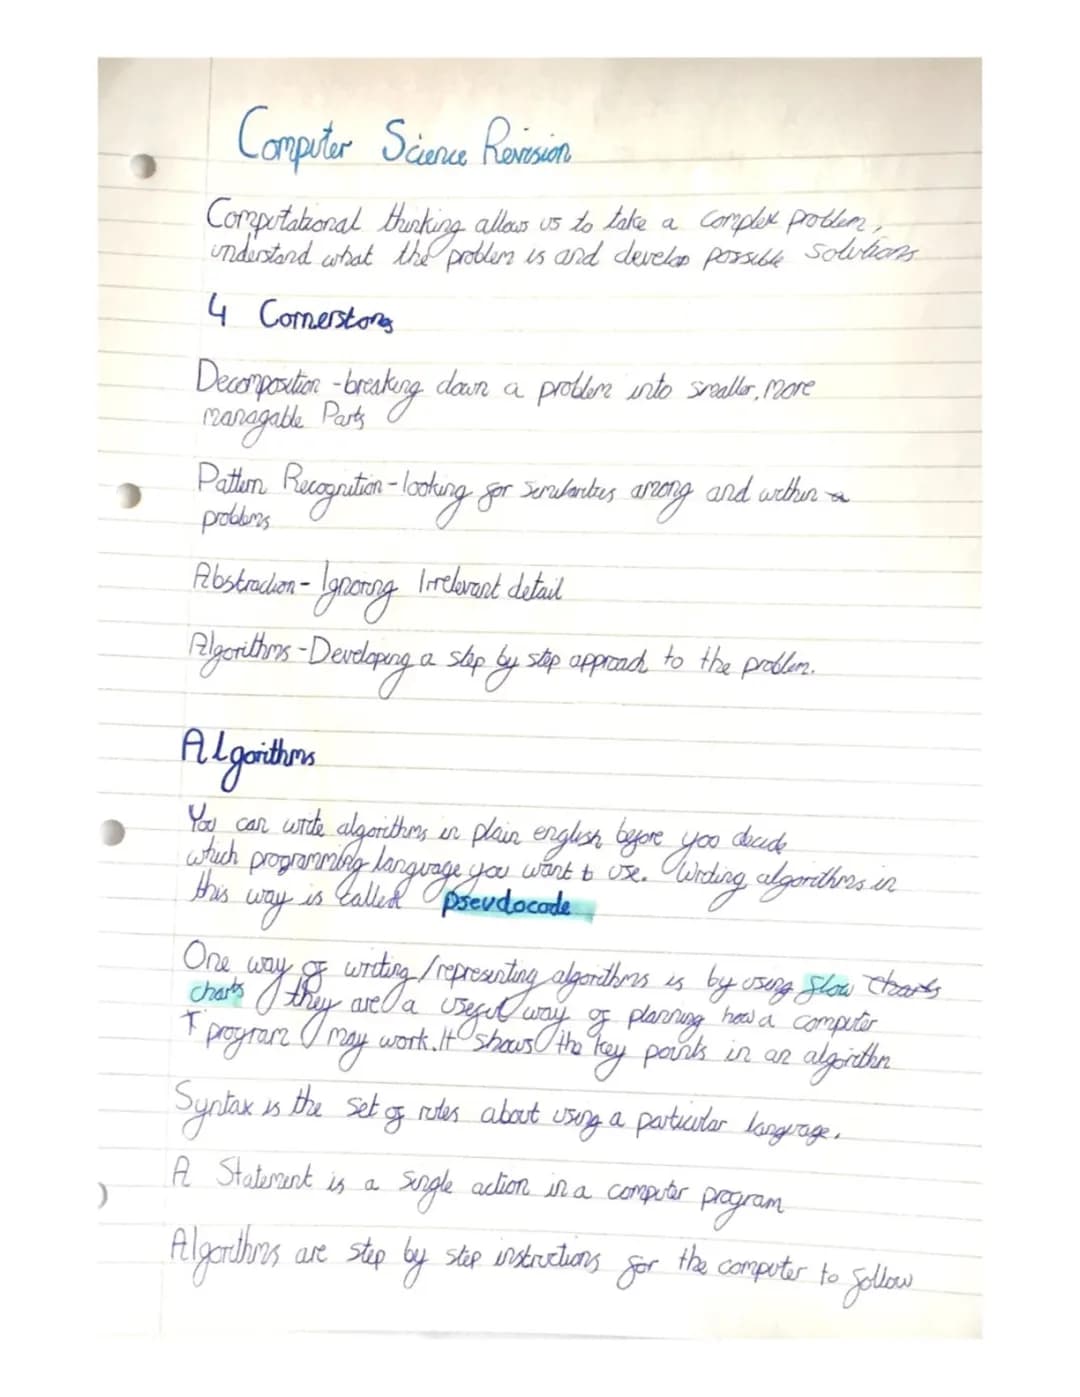 Computer Science Revision
Computational thinking allows us to take a complex problem,
understand what the problem is and develop possible solutions
4 Cornerstones
Decomposition - breaking down a problem into smaller, more
managable Parts
Pattern Recognition - looking for similarities among and within a
problems
Abstraction - Ignoring Irrelevant detail
Algorithms - Developing a step by step approach to the problem.
Algorithms
You can write algorithms in plain english before you decide
which programming language you want to use. Writing algorithms in
this way is called pseudocode
One way of writing/representing algorithms is by using flow charts
charts they are a useful way of planning how a computer
program may work. It shows the key points in an algorithm
Syntax is the set of rules about using a particular language.
A Statement is a single action in a computer program
Algorithms are step by step instructions for the computer to follow